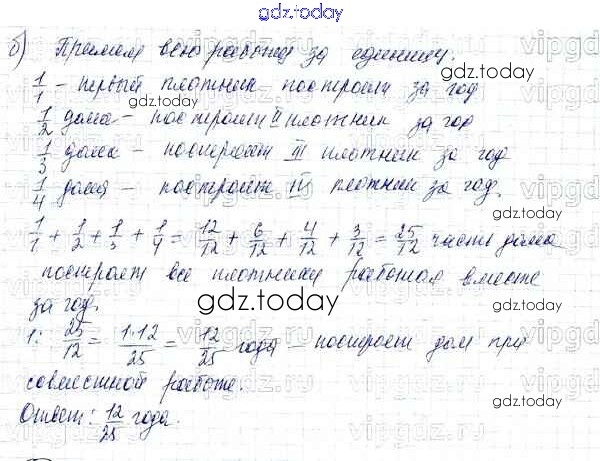 gdz.today
б) Примем всю работу за единицу.
gdz.today
1/1 - первый плотник построит за год
1/2 дома - построит II плотник за год
gdz.today
1/3 дома - построит III плотник за год
1/4 дома - построит IV плотник за год.
gdz.today
1/1 + 1/2 + 1/3 + 1/4 = 12/12 + 6/12 + 4/12 + 3/12 = 25/12 части дома
построят все плотники работая вместе
за год.
gdz.today
gdz.today
1 : 25/12 = 1·12/25 = 12/25 года - построят дом при
совместной работе.
gdz.today
Ответ: 12/25 года.